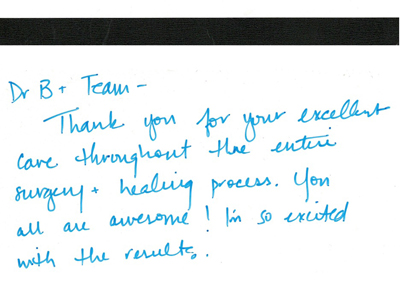 Dr B + Team -
Thank you for your excellent
care throughout the entire
surgery + healing process. You
all are awesome! I'm so excited
with the results.